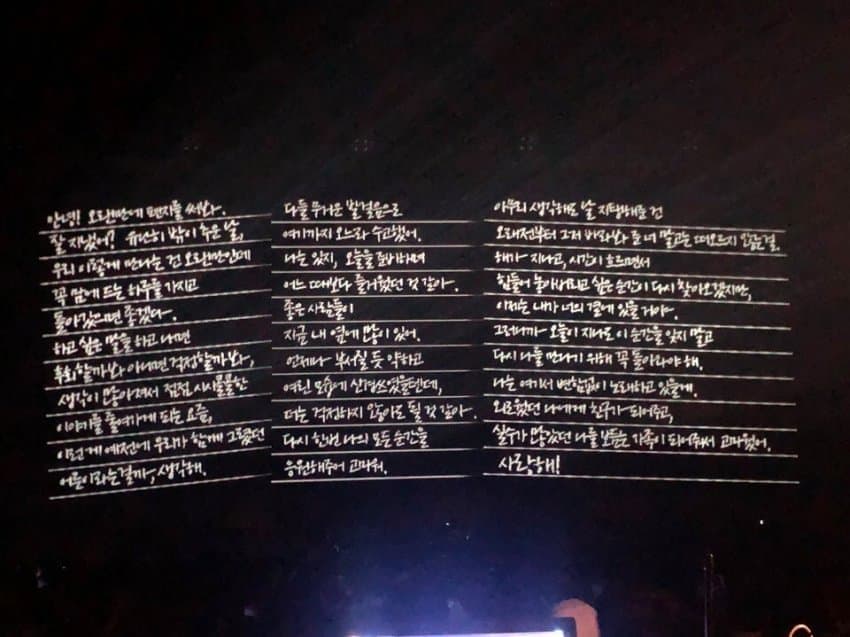 안녕! 오랜만에 편지를 써봐.
잘 지냈어? 유난히 밖이 추운 날,
우리 이렇게 만나는 건 오랜만인데
꼭 맘에 드는 하루를 가지고
돌아갔으면 좋겠다.
하고 싶은 말을 하고 나면
후회할까봐 아니면 걱정할까봐,
생각이 많아져서 점점 시시콜콜한
이야기를 줄여가게 되는 요즘,
이런 게 예전에 우리가 함께 그렸던
어른이라는 걸까, 생각해.
다들 무거운 발걸음으로
여기까지 오느라 수고했어.
나는 있지, 오늘을 준비하며
어느 때보다 즐거웠던 것 같아.
좋은 사람들이
지금 내 옆에 많이 있어.
언제나 부서질 듯 약하고
여린 모습에 신경쓰였을텐데,
더는 걱정하지 않아도 될 것 같아.
다시 한번 나의 모든 순간을
응원해주어 고마워.
아무리 생각해도 날 지탱해준 건
오래전부터 그저 바라봐 준 너 말고는 떠오르지 않는걸.
해가 지나고, 시간이 흐르면서
힘들어 놓아버리고 싶은 순간이 다시 찾아오겠지만,
이제는 내가 너의 곁에 있을거야.
그러니까 오늘이 지나도 이 순간을 잊지 말고
다시 나를 만나기 위해 꼭 돌아와야 해.
나는 여기서 변함없이 노래하고 있을게.
외로웠던 나에게 친구가 되어주고,
실수가 많았던 나를 보듬는 가족이 되어줘서 고마웠어.
사랑해!